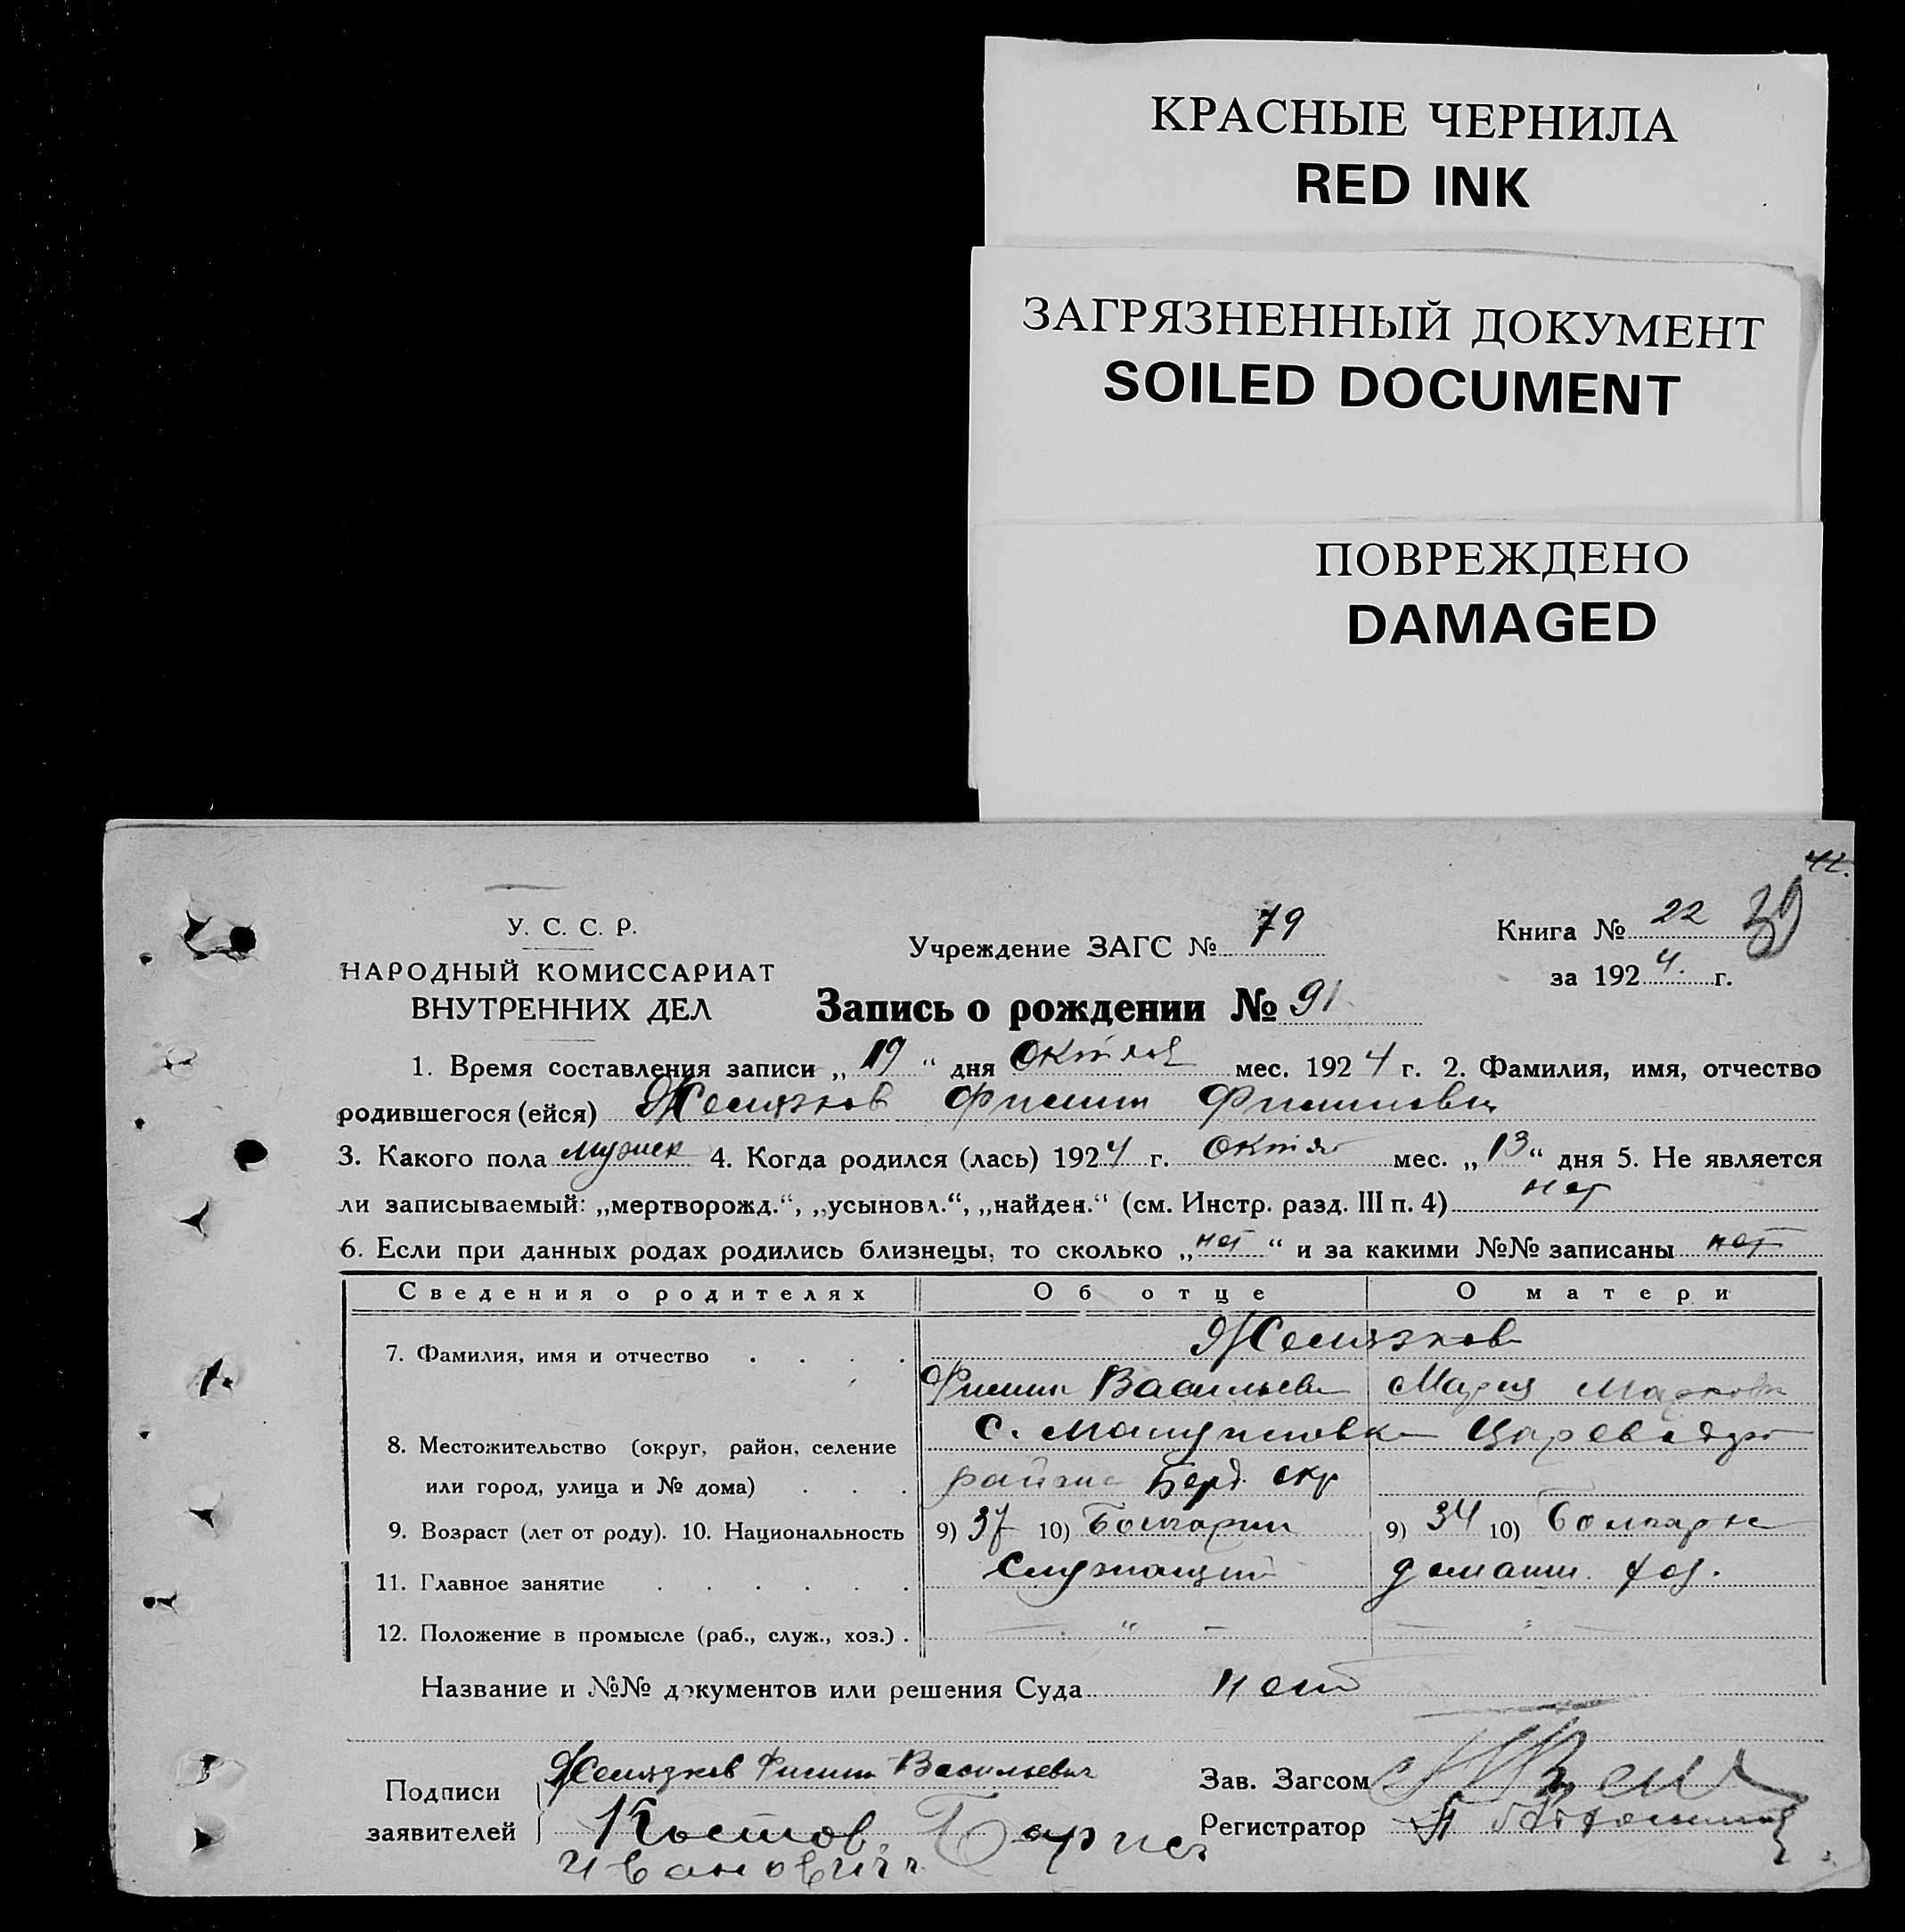 КРАСНЫЕ ЧЕРНИЛА
RED INK
ЗАГРЯЗНЕННЫЙ ДОКУМЕНТ
SOILED DOCUMENT
ПОВРЕЖДЕНО
DAMAGED
42.
У. С. С. Р.
НАРОДНЫЙ КОМИССАРИАТ
ВНУТРЕННИХ ДЕЛ
Учреждение ЗАГС № 79
Книга № 22 39
за 1924 г.
Запись о рождении № 91
1. Время составления записи „19“ дня Октяб мес. 1924 г. 2. Фамилия, имя, отчество
родившегося (ейся) Желязков Филипп Филиппович
3. Какого пола мужск 4. Когда родился (лась) 1924 г. Октяб мес. „13“ дня 5. Не является
ли записываемый: „мертворожд.“, „усыновл.“, „найден.“ (см. Инстр. разд. III п. 4) нет
6. Если при данных родах родились близнецы, то сколько „нет“ и за какими №№ записаны нет
Сведения о родителях Об отце О матери
7. Фамилия, имя и отчество Желязков
Филипп Васильев Мария Марков
8. Местожительство (округ, район, селение С. Мануиловка Царевод
или город, улица и № дома) района Берд. окр
9. Возраст (лет от роду). 10. Национальность 9) 37 10) Болгарин 9) 34 10) Болгарка
11. Главное занятие Служащий домашн. хоз.
12. Положение в промысле (раб., служ., хоз.) — „ — — „
Название и №№ документов или решения Суда нет
Подписи
заявителей
Желязков Филипп Васильевич
Костов Борис
Иванович
Зав. Загсом
Регистратор